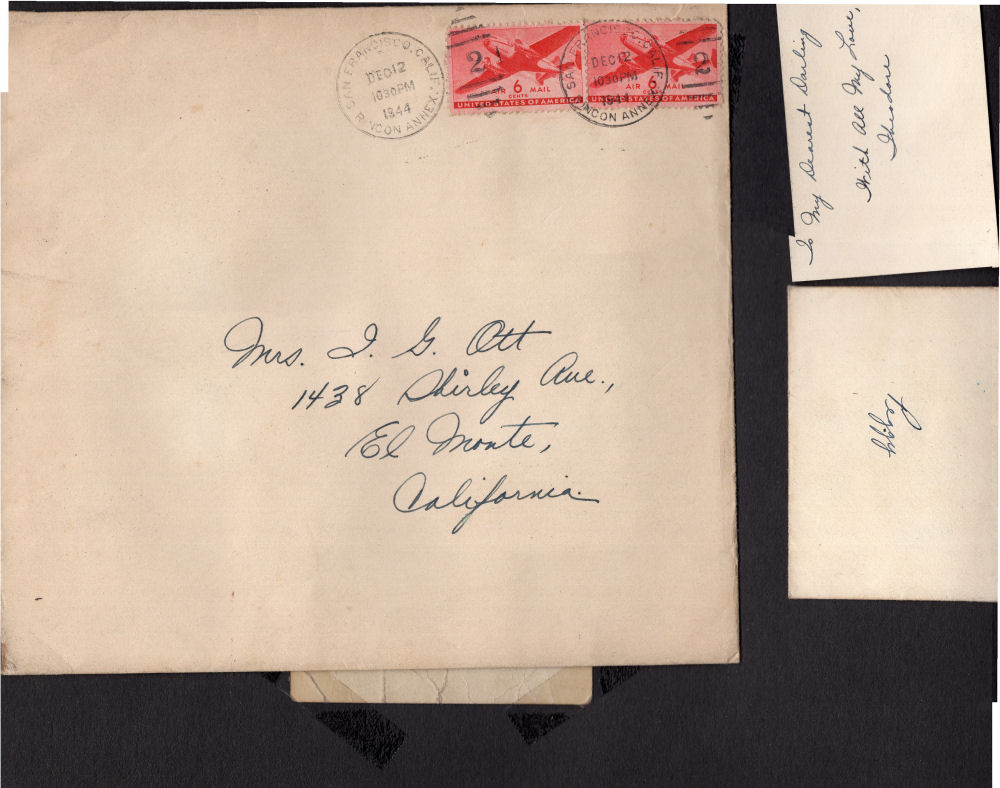 SAN FRANCISCO, CALIF.
DEC 12
1030 PM
1944
RINCON ANNEX.
2
AIR 6 MAIL
CENTS
UNITED STATES OF AMERICA
SAN FRANCISCO, CALIF.
DEC 12
1030 PM
1944
RINCON ANNEX
2
AIR 6 MAIL
UNITED STATES OF AMERICA
Mrs. T. G. Ott
1438 Shirley Ave.,
El Monte,
California.
To My Dearest Darling
With All My Love,
Theodore